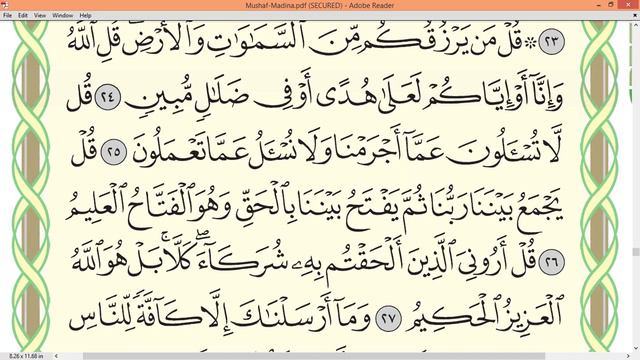 Mushaf-Madina.pdf (SECURED) - Adobe Reader
File Edit View Window Help
٢٣ ۞ قُلْ مَن يَرْزُقُكُم مِّنَ ٱلسَّمَٰوَٰتِ وَٱلْأَرْضِۖ قُلِ ٱللَّهُۖ
وَإِنَّآ أَوْ إِيَّاكُمْ لَعَلَىٰ هُدًى أَوْ فِى ضَلَٰلٍ مُّبِينٍ ٢٤ قُل
لَّا تُسْـَٔلُونَ عَمَّآ أَجْرَمْنَا وَلَا نُسْـَٔلُ عَمَّا تَعْمَلُونَ ٢٥ قُلْ
يَجْمَعُ بَيْنَنَا رَبُّنَا ثُمَّ يَفْتَحُ بَيْنَنَا بِٱلْحَقِّ وَهُوَ ٱلْفَتَّاحُ ٱلْعَلِيمُ
٢٦ قُلْ أَرُونِىَ ٱلَّذِينَ أَلْحَقْتُم بِهِۦ شُرَكَآءَۖ كَلَّاۚ بَلْ هُوَ ٱللَّهُ
ٱلْعَزِيزُ ٱلْحَكِيمُ ٢٧ وَمَآ أَرْسَلْنَٰكَ إِلَّا كَآفَّةً لِّلنَّاسِ
8.26 x 11.68 in